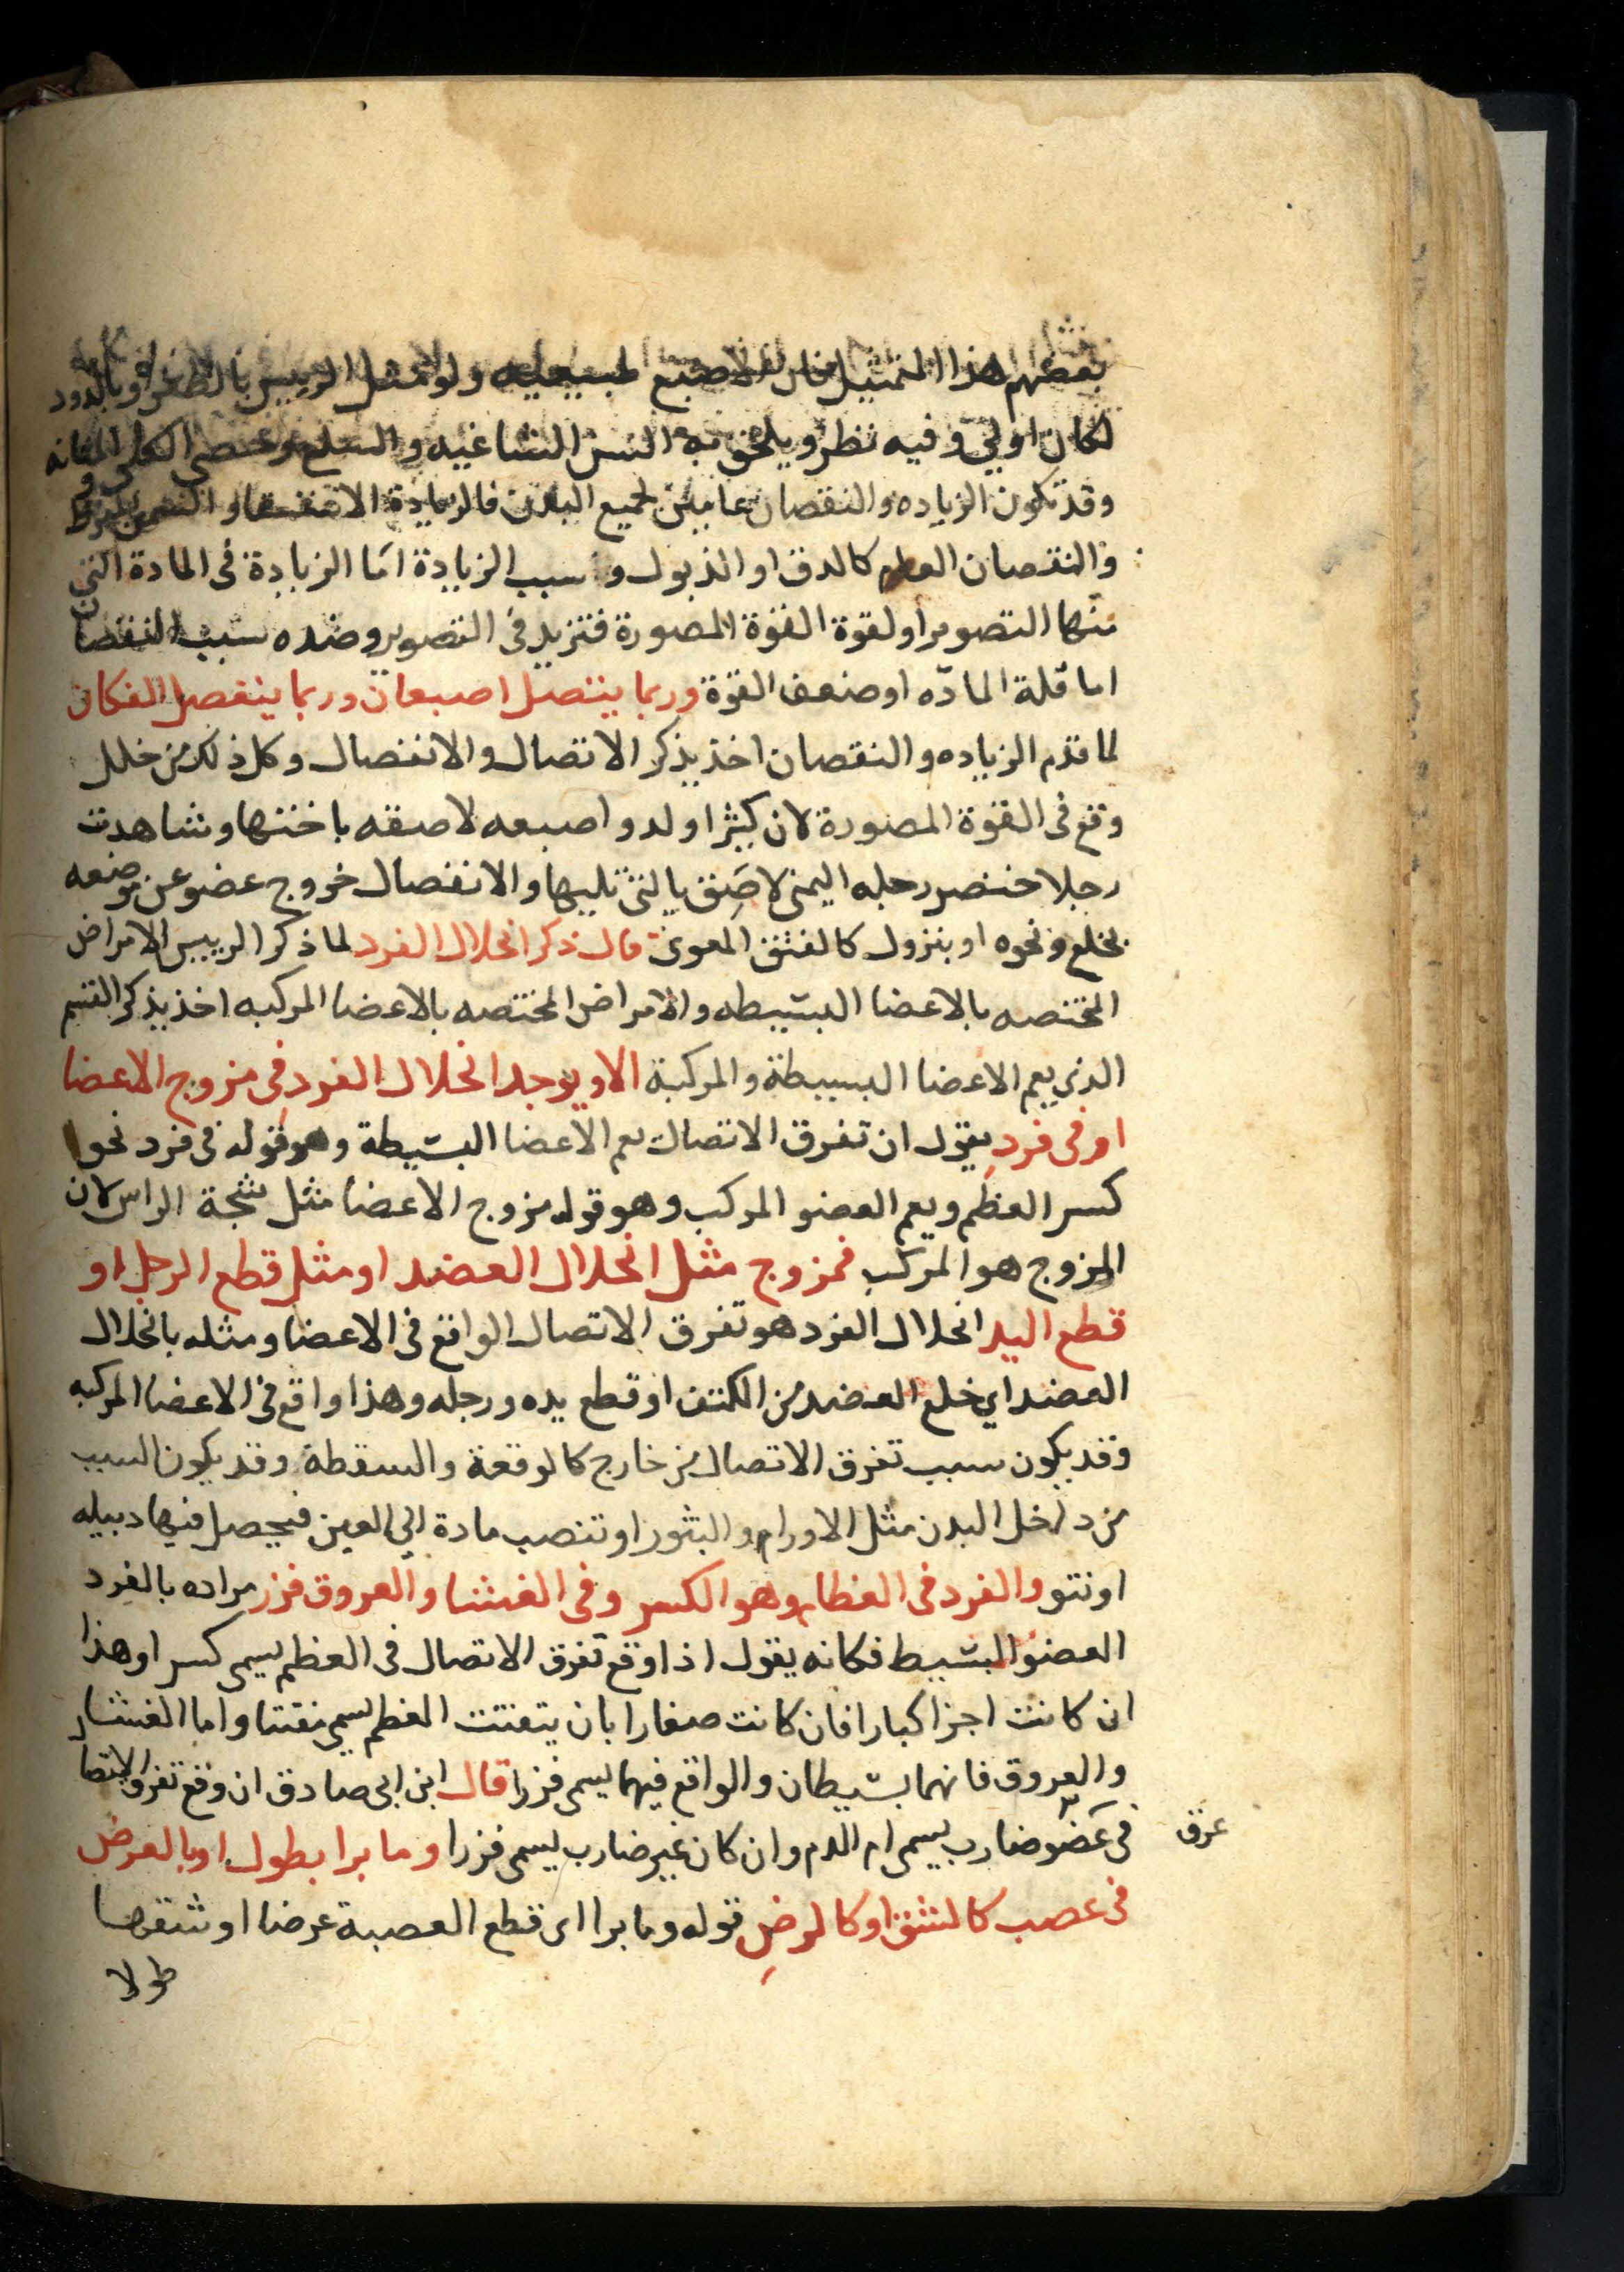 بعضهم هذا التمثيل فان الاصبع طبيعيه ولو مثل الرييس بالظفره وبالدود
لكان اولي وفيه نظر ويلحق به السن الشاغيه والسلع وحصي الكلي والمثانه
وقد تكون الزياده والنقصان عامين لجميع البدن فالزيادة الاستسقا والسمن المفرط
والنقصان العام كالدق او الذبول وسبب الزيادة اما الزيادة في المادة التي
منها التصوير او لقوة القوة المصورة فتزيد في التصوير وضده سبب النقصان
اما قلة المادّه او ضعف القوة وربما يتصل اصبعان وربما ينفصل الفكان
لما قدم الزياده والنقصان اخذ يذكر الاتصال والانفصال وكل ذلك من خلل
وقع في القوة المصورة لان كثيرا ولدوا صبعه لاصقه باختها وشاهدت
رجلا خنصر رجله اليمني لاصق بالتي تليها والانفصال خروج عضو عن موضعه
بخلع ونحوه او بنزول كالفتق المعوي قال ذكر انحلال الفرد لما ذكر الرييس الامراض
المختصه بالاعضا البسيطه والامراض المختصه بالاعضا المركبه اخذ يذكر القسم
الذي يعم الاعضا البسيطة والمركبة الا ويوجد انحلال الفرد في مزوج الاعضا
او في فرد يقول ان تفرق الاتصال يعم الاعضا البسيطة وهو قوله في فرد نحو
كسر العظم ويعم العضو المركب وهو قوله مزوج الاعضا مثل شجة الراس لان
المزوج هو المركب فمزوج مثل انحلال العضد او مثل قطع الرجل او
قطع اليد انحلال الفرد هو تفرق الاتصال الواقع في الاعضا ومثله بانحلال
العضد اي خلع العضد من الكتف او قطع يده ورجله وهذا واقع في الاعضا المركبه
وقد يكون سبب تفرق الاتصال من خارج كالوقعة والسقطة وقد يكون السبب
من داخل البدن مثل الاورام والبثور او تنصب مادة الي العين فيحصل فيها دبيله
او نتو والفرد في العظام وهو الكسر وفي الغشا والعروق فزر مراده بالفرد
العضو البسيط فكانه يقول اذا وقع تفرق الاتصال في العظم يسمي كسرا وهذا
ان كانت اجزا كبارا فان كانت صغارا بان يتفتت العظم يسمي تفتتا واما الغشا
والعروق فانهما بسيطان والواقع فيهما يسمي فزرا قال ابن ابي صادق ان وقع تفرق الاتصال
في عضو ضارب يسمي ام الدم وان كان غير ضارب يسمي فزرا وما برا بطول او بالعرض
عرق
في عصب كالشق او كالرض قوله وما برا اي قطع العصبة عرضا او شقها
طولا